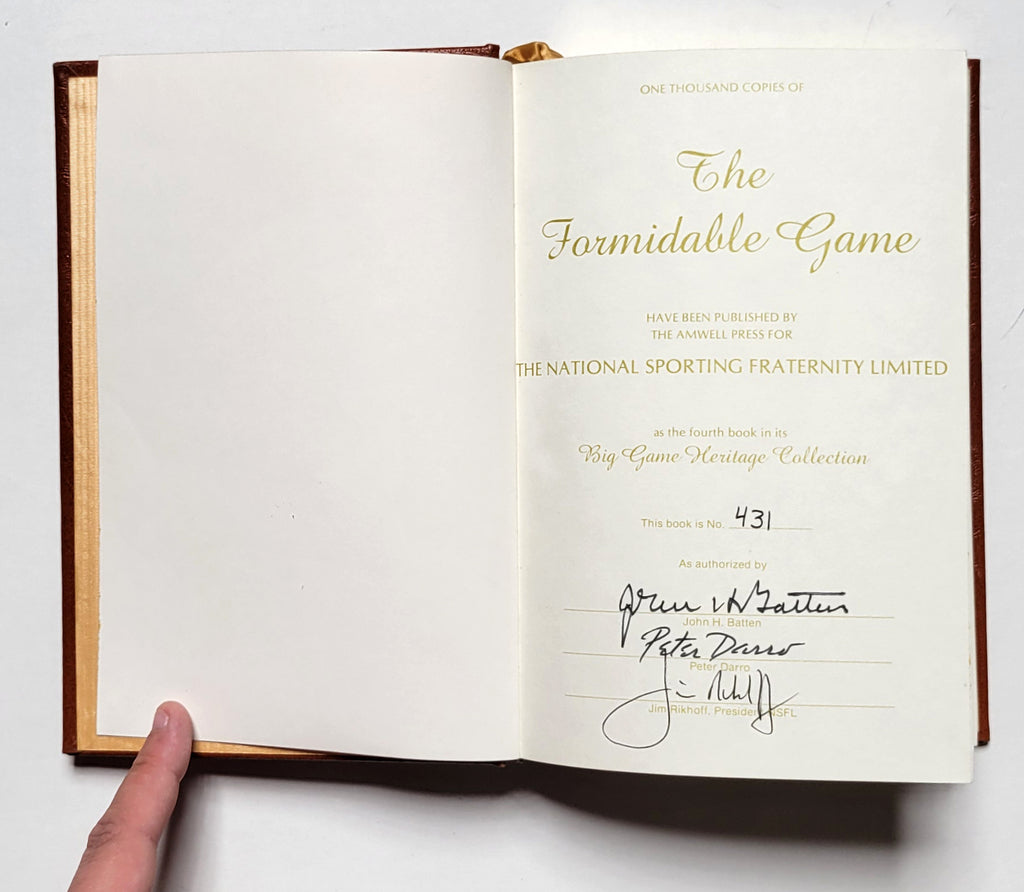 ONE THOUSAND COPIES OF
The
Formidable Game
HAVE BEEN PUBLISHED BY
THE AMWELL PRESS FOR
THE NATIONAL SPORTING FRATERNITY LIMITED
as the fourth book in its
Big Game Heritage Collection
This book is No. 431
As authorized by
John H Batten
John H. Batten
Peter Darro
Peter Darro
Jim Rikhoff
Jim Rikhoff, President NSFL